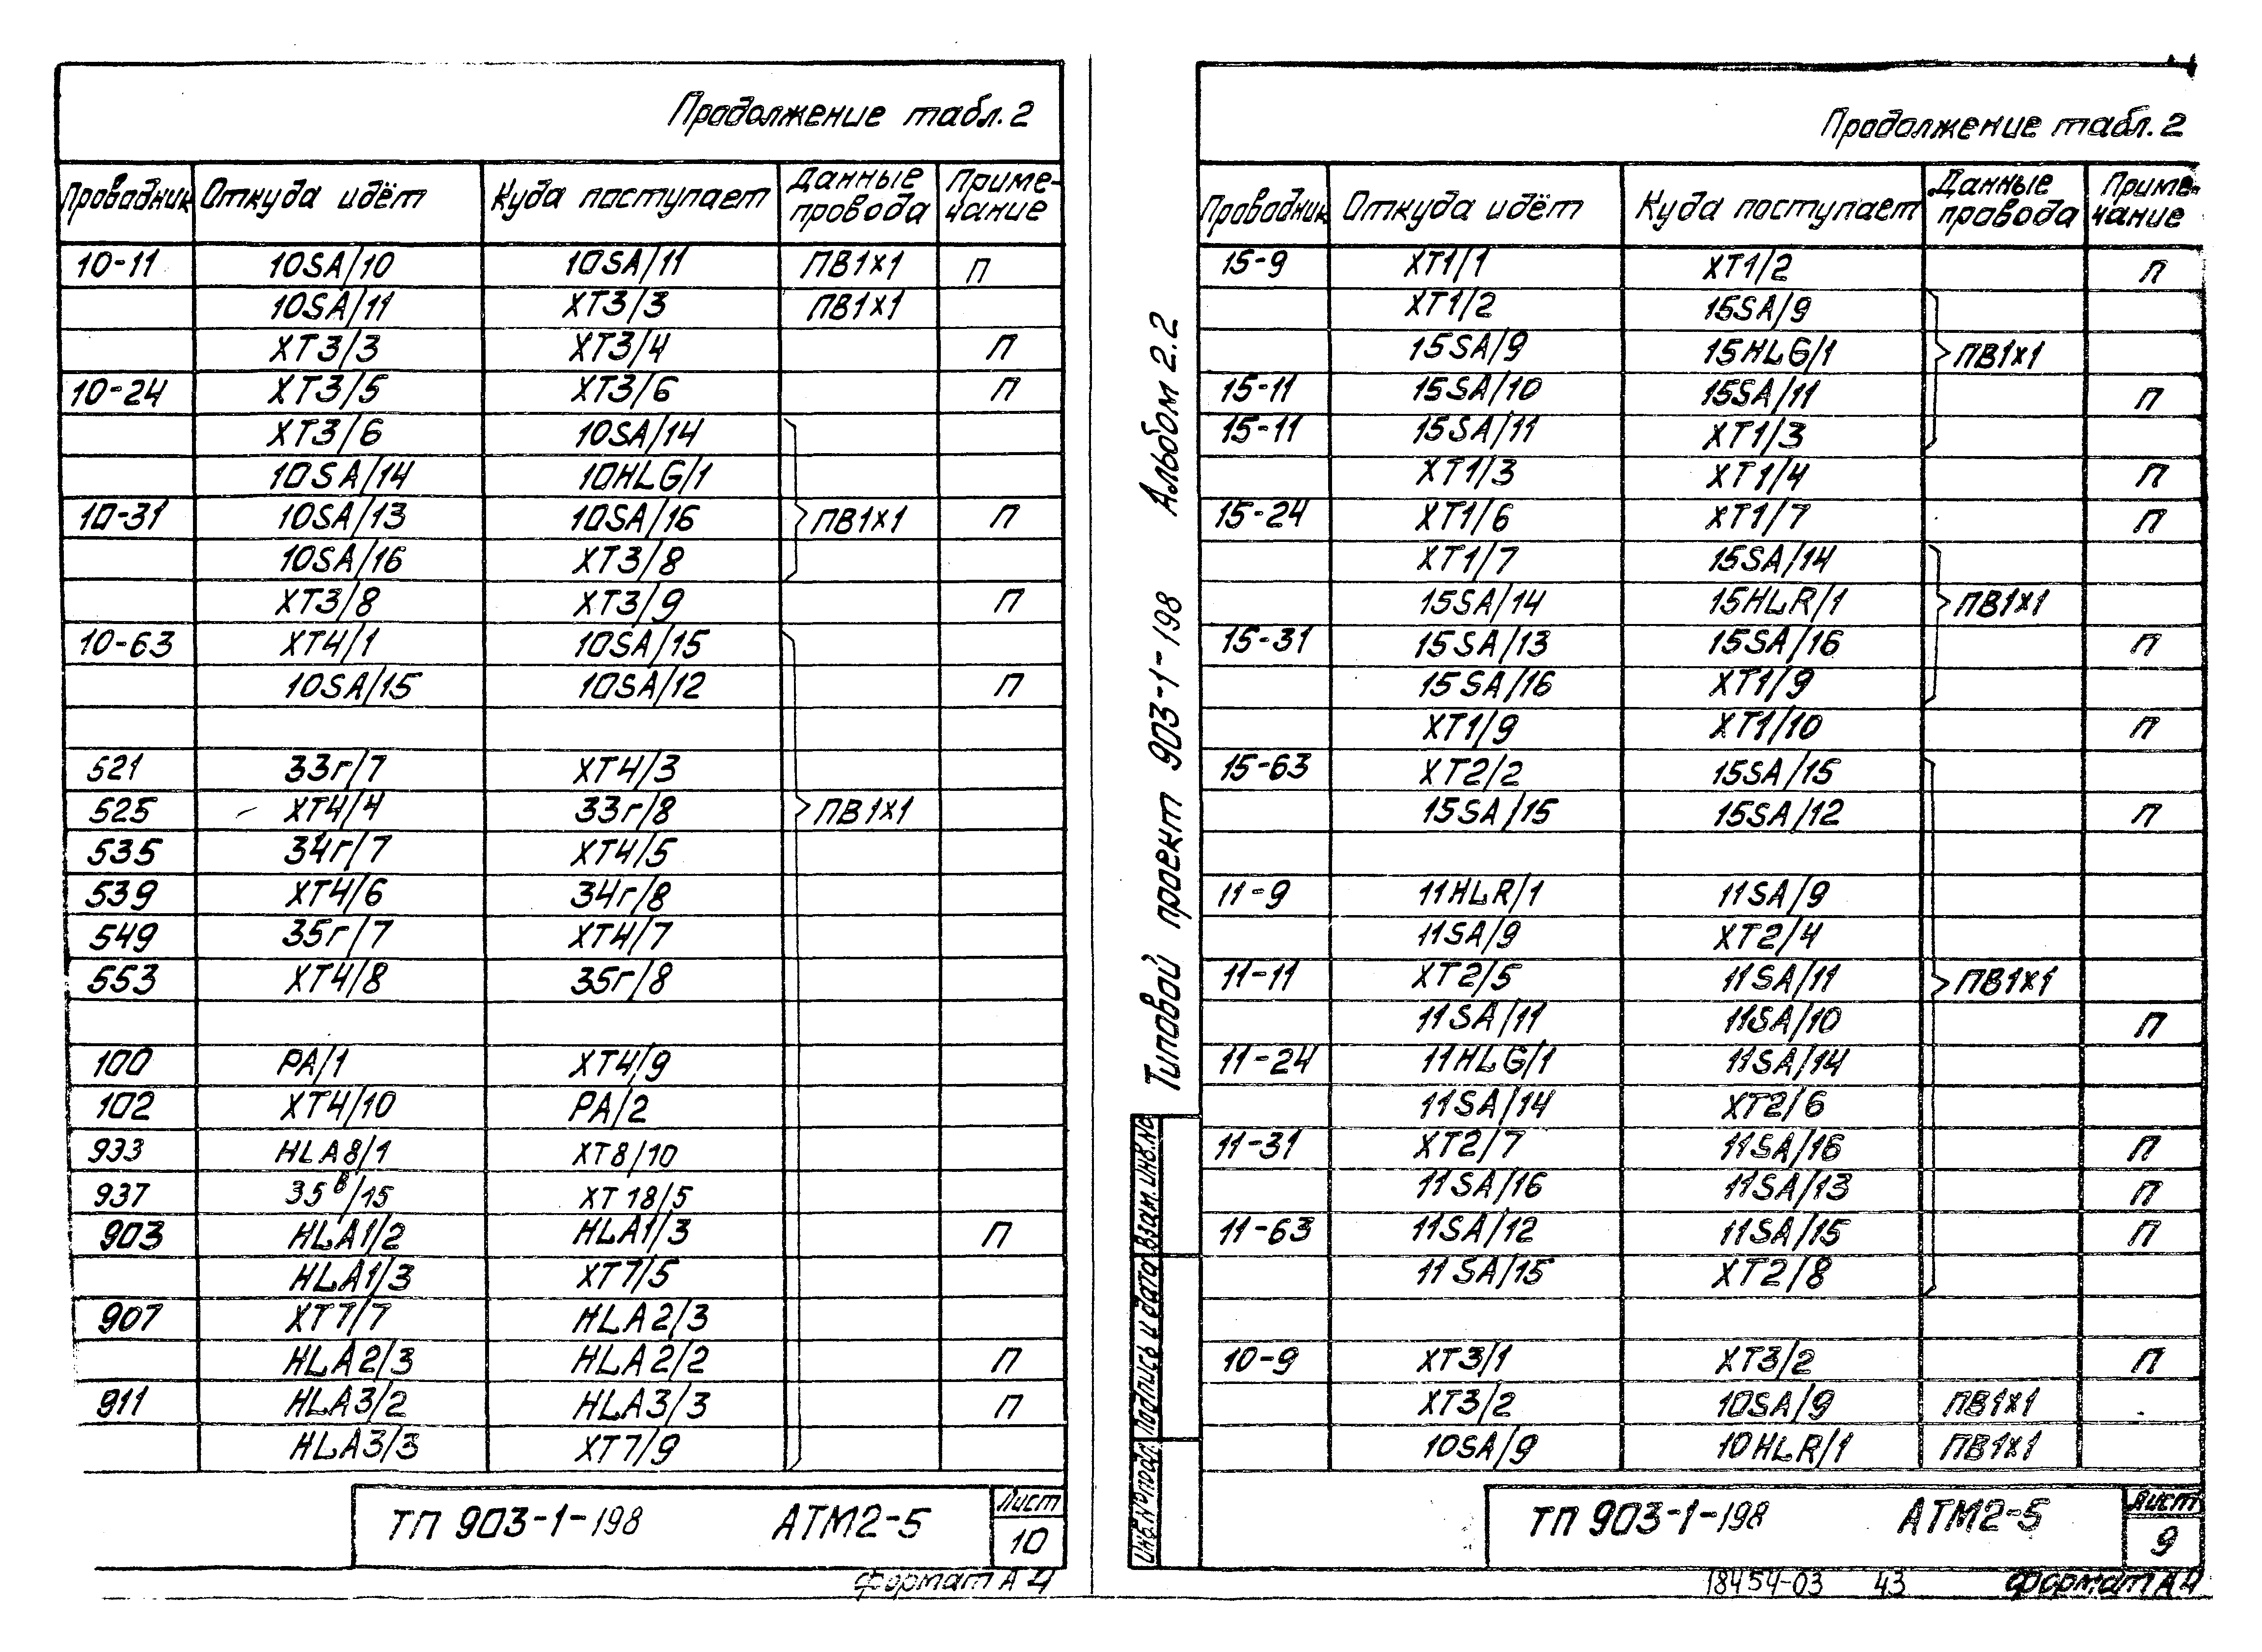 Продолжение табл. 2
Проводник Откуда идёт Куда поступает Данные провода Примечание
10-11 10SA/10 10SA/11 ПВ1х1 П
10SA/11 XT3/3 ПВ1х1
XT3/3 XT3/4 П
10-24 XT3/5 XT3/6 П
XT3/6 10SA/14
10SA/14 10HLG/1
10-31 10SA/13 10SA/16 ПВ1х1 П
10SA/16 XT3/8
XT3/8 XT3/9 П
10-63 XT4/1 10SA/15
10SA/15 10SA/12 П
521 33г/7 XT4/3
525 XT4/4 33г/8 ПВ1х1
535 34г/7 XT4/5
539 XT4/6 34г/8
549 35г/7 XT4/7
553 XT4/8 35г/8
100 PA/1 XT4/9
102 XT4/10 PA/2
933 HLA8/1 XT8/10
937 35в/15 XT18/5
903 HLA1/2 HLA1/3 П
HLA1/3 XT7/5
907 XT7/7 HLA2/3
HLA2/3 HLA2/2 П
911 HLA3/2 HLA3/3 П
HLA3/3 XT7/9
ТП 903-1-198 АТМ2-5 Лист 10
Формат А4
Типовой проект 903-1-198 Альбом 2.2
Продолжение табл. 2
Проводник Откуда идёт Куда поступает Данные провода Примечание
15-9 XT1/1 XT1/2 П
XT1/2 15SA/9
15SA/9 15HLG/1 ПВ1х1
15-11 15SA/10 15SA/11 П
15-11 15SA/11 XT1/3
XT1/3 XT1/4 П
15-24 XT1/6 XT1/7 П
XT1/7 15SA/14
15SA/14 15HLR/1 ПВ1х1
15-31 15SA/13 15SA/16 П
15SA/16 XT1/9
XT1/9 XT1/10 П
15-63 XT2/2 15SA/15
15SA/15 15SA/12 П
11-9 11HLR/1 11SA/9
11SA/9 XT2/4
11-11 XT2/5 11SA/11 ПВ1х1
11SA/11 11SA/10 П
11-24 11HLG/1 11SA/14
11SA/14 XT2/6
11-31 XT2/7 11SA/16 П
11SA/16 11SA/13 П
11-63 11SA/12 11SA/15 П
11SA/15 XT2/8
10-9 XT3/1 XT3/2 П
XT3/2 10SA/9 ПВ1х1
10SA/9 10HLR/1 ПВ1х1
Инв.№ подл. Подпись и дата Взам. инв.№
ТП 903-1-198 АТМ2-5 Лист 9
18454-03 43 Формат А4